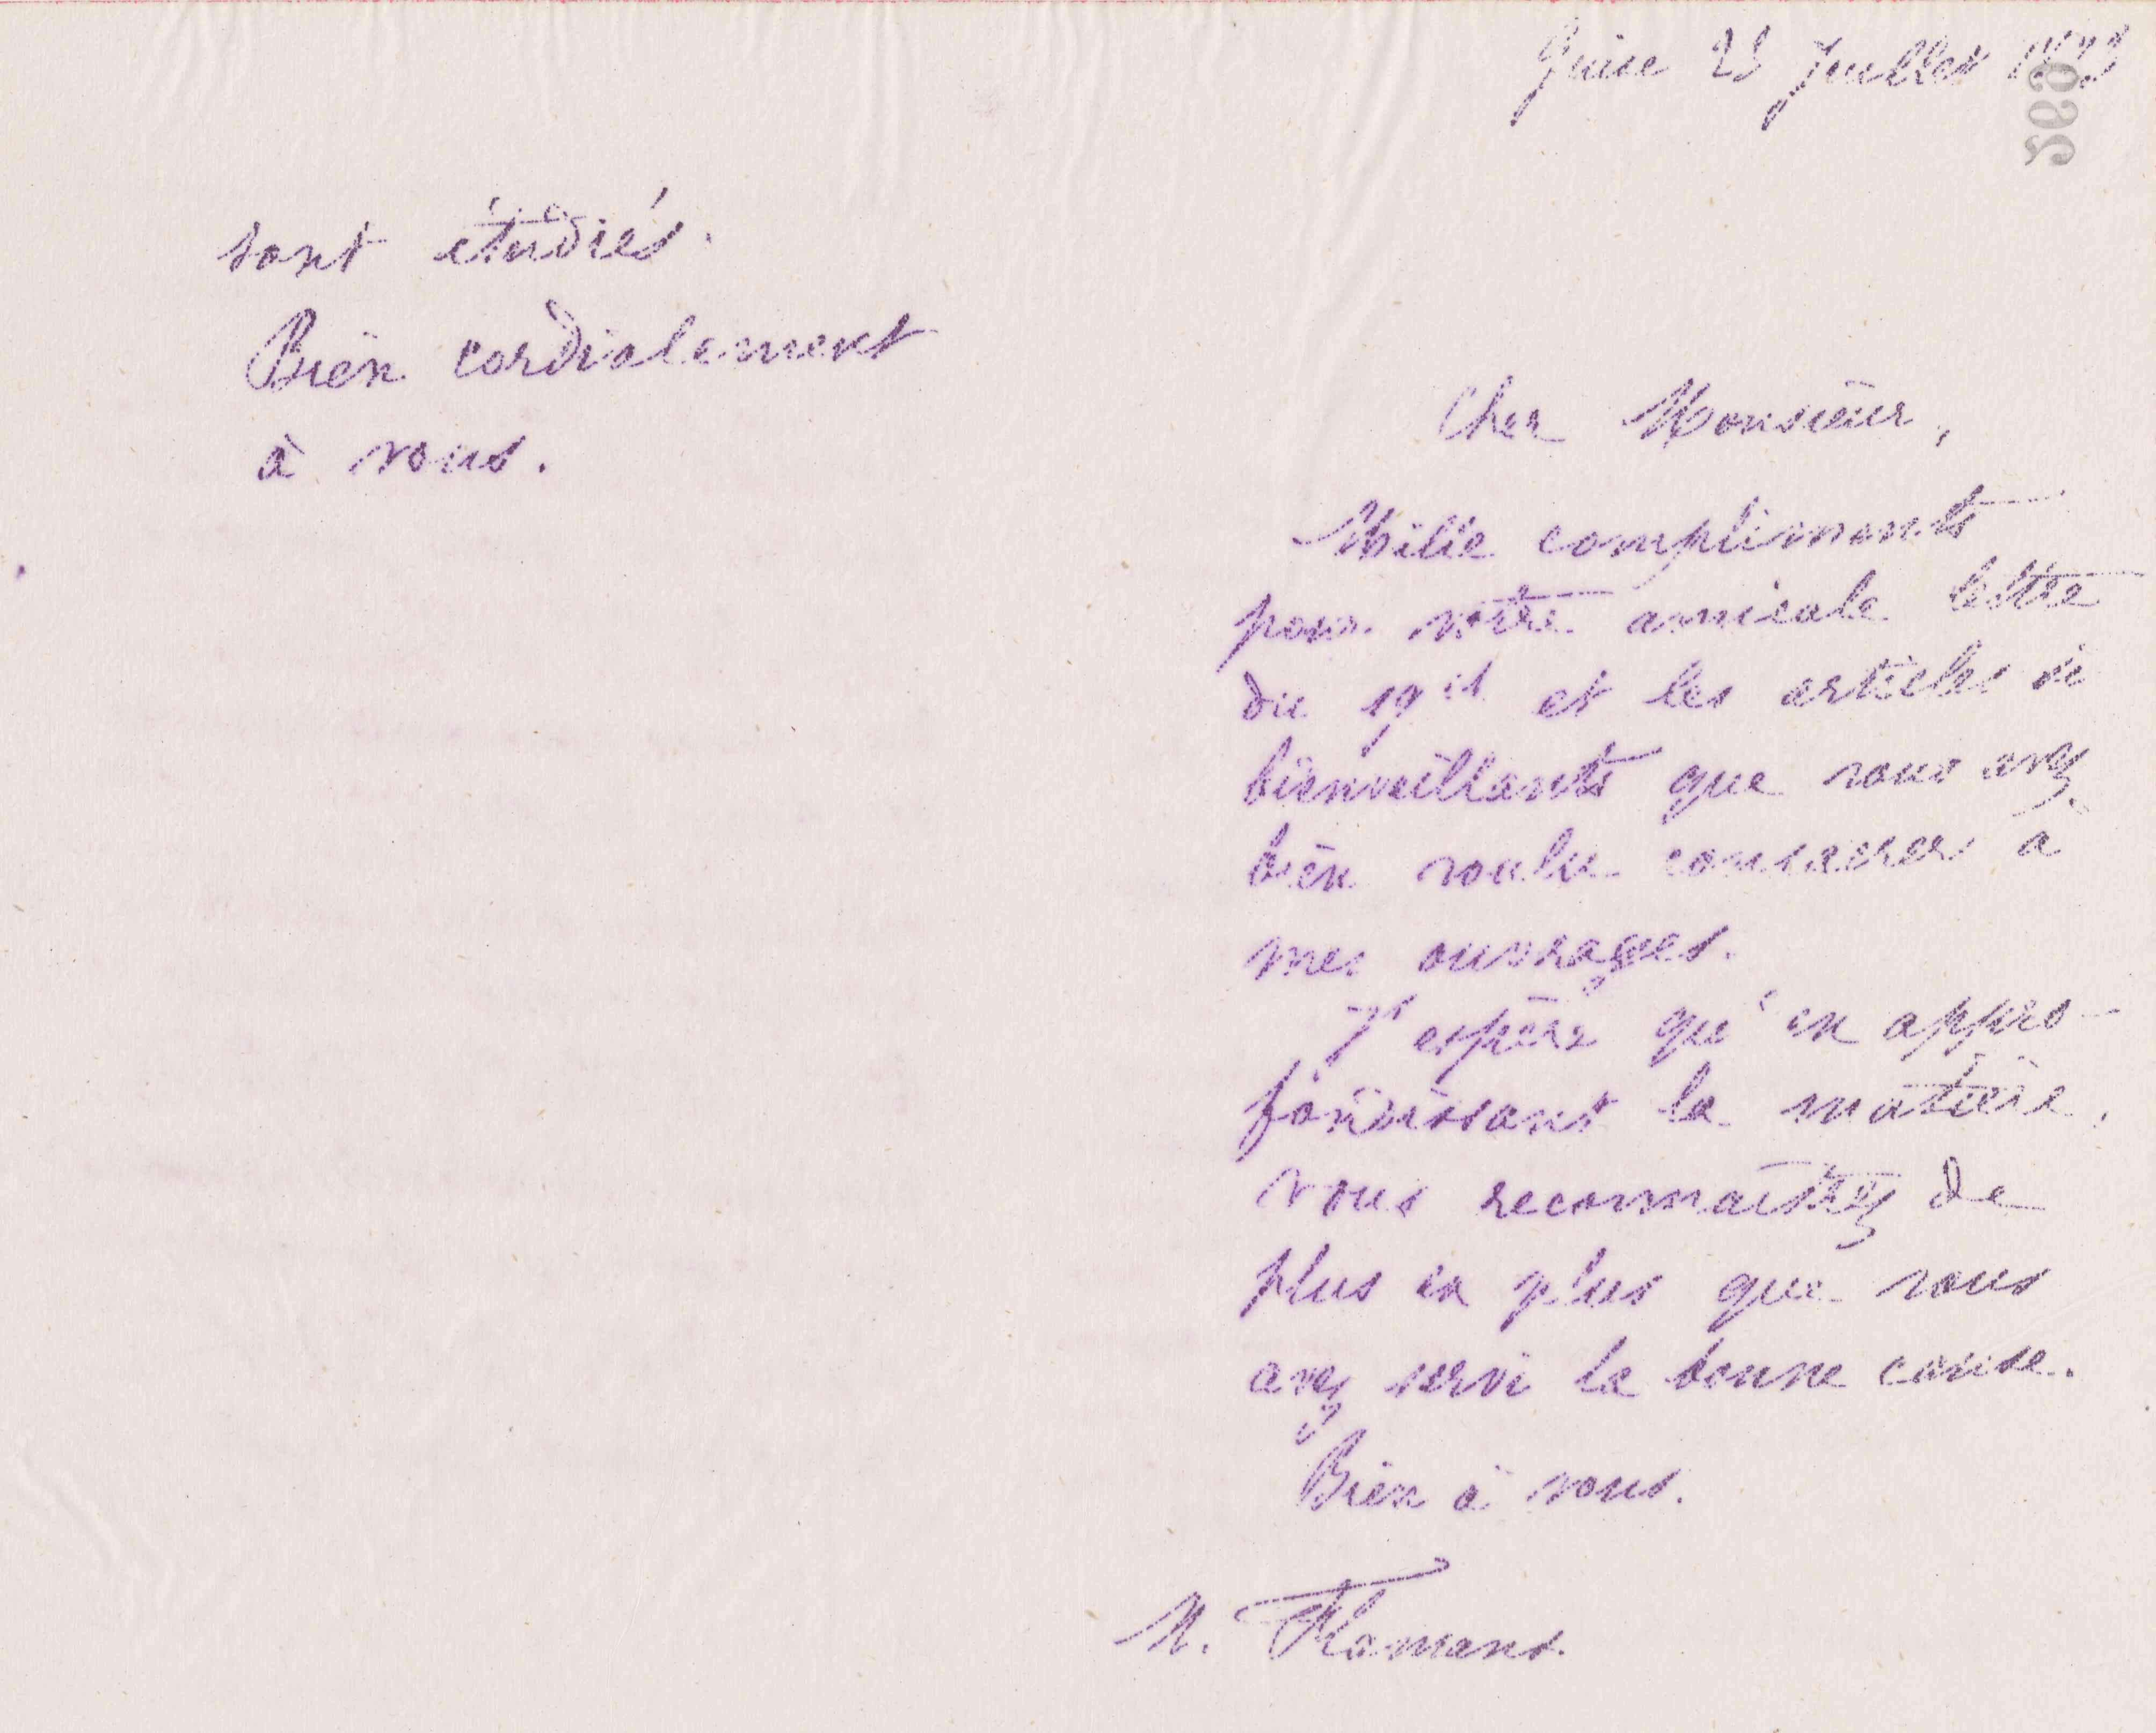 sont étudiés.
Bien cordialement
à vous.
Guise 23 Juillet 1873
260
Cher Monsieur,
Mille compliments
pour votre amicale lettre
du 19 ct et les articles si
bienveillants que vous avez
bien voulu consacrer à
mes ouvrages.
J'espère qu'en appro-
fondissant la matière,
vous reconnaîtrez de
plus en plus que vous
avez servi la bonne cause.
Bien à vous.
M. Flamant.